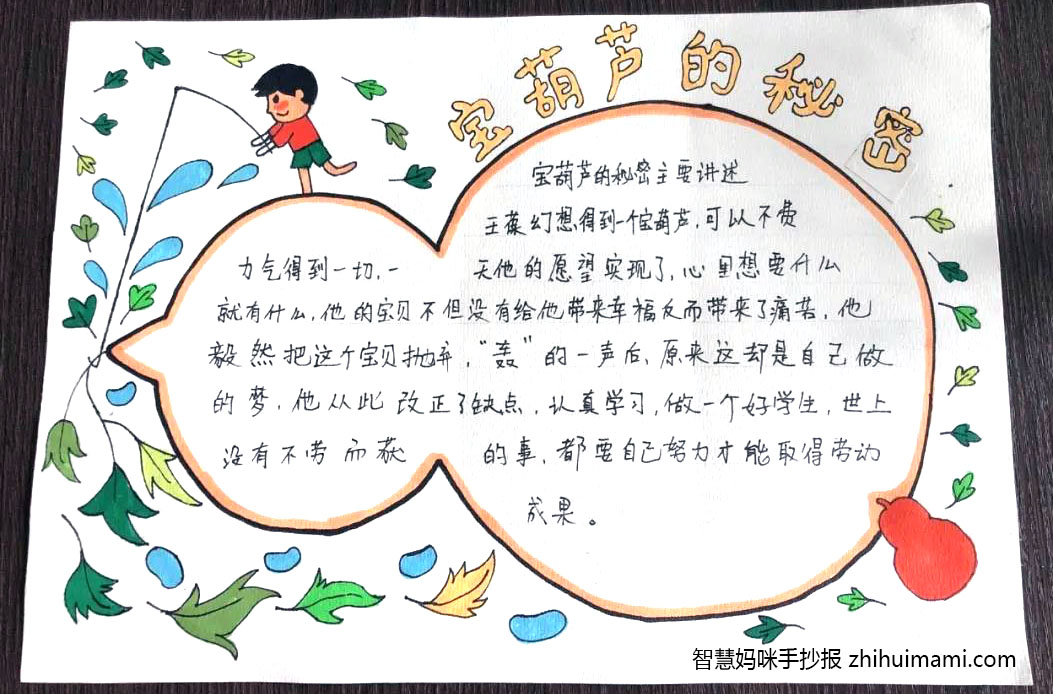 宝葫芦的秘密
宝葫芦的秘密主要讲述
王葆幻想得到一个宝葫芦,可以不费
力气得到一切,一天他的愿望实现了,心里想要什么
就有什么,他的宝贝不但没有给他带来幸福反而带来了痛苦,他
毅然把这个宝贝抛弃,“轰”的一声后,原来这却是自己做
的梦,他从此改正了缺点,认真学习,做一个好学生,世上
没有不劳而获的事,都要自己努力才能取得劳动
成果。
智慧妈咪手抄报 zhihuimami.com